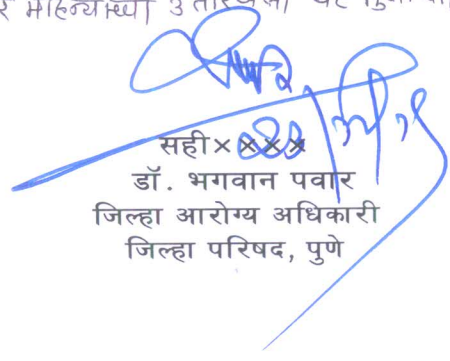 र महिन्याच्या 3 तारखेला
सही××××
डॉ. भगवान पवार
जिल्हा आरोग्य अधिकारी
जिल्हा परिषद, पुणे